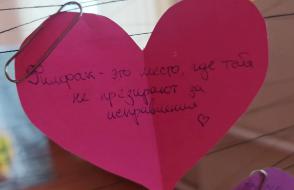 Фимрак - это место, где тебя
не презирают за
исправления